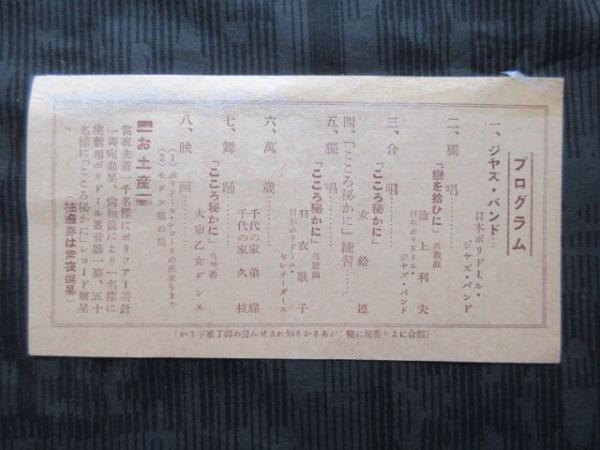 プログラム
一、ジヤズ・バンド……
日本ポリドール・
ジヤズ・バンド
二、獨唱……
「戀を拾ひに」外數曲
池上利夫
日本ポリドール・
ジヤズ・バンド
三、合唱……
「こころ秘かに」
女給連
四、「こころ秘かに」練習……
五、獨唱……
「こころ秘かに」外數曲
羽衣歌子
日本ポリドール・
セレナーダース
六、萬歳……
千代の家弟蝶
千代の家久枝
七、舞踊……
「こころ秘かに」外
大市乙女ダンス
八、映画……
(1)ポリドール・レコードの出來るまで
(2)モダン籠の鳥
お土産
當夜先着一千名様にポリフアー葛針
一個宛進呈、尚抽籤により一名様に
座敷用ポリドール蓄音器一臺、五十
名様に「こころ秘かに」レコード贈呈
抽籤券は當夜進呈